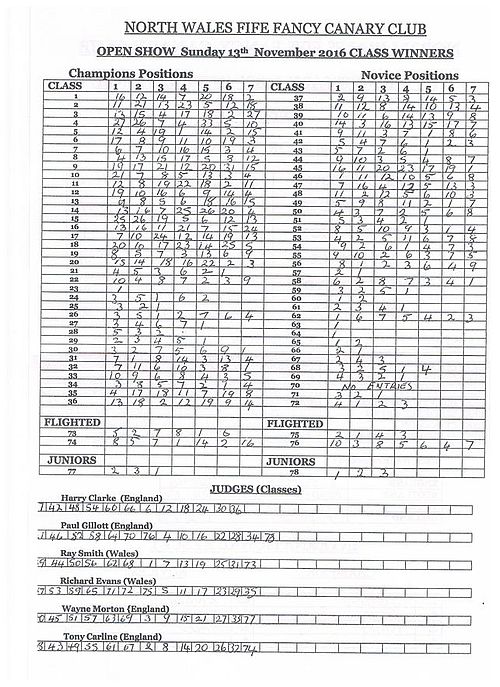 NORTH WALES FIFE FANCY CANARY CLUB
OPEN SHOW Sunday 13th November 2016 CLASS WINNERS
Champions Positions Novice Positions
CLASS 1 2 3 4 5 6 7 CLASS 1 2 3 4 5 6 7
1 16 12 14 7 20 18 2 37 2 9 13 8 14 5 3
2 11 21 13 23 5 12 18 38 11 12 8 14 10 13 4
3 13 15 4 17 18 2 27 39 10 11 6 14 13 9 8
4 40 14 3 16 13 15 17
5 12 4 19 1 14 2 15 41 9 11 3 7 1 8 6
6 17 9 9 11 10 19 3 42 5 4 7 6 1 2 3
7 6 7 10 16 15 3 4 43 5 7 2 6
8 4 13 15 17 5 8 12 44 9 10 3 5 4 8 7
9 19 17 21 12 20 31 15 45 16 11 20 23 17 19 1
10 21 7 8 5 13 3 4 46 1 11 12 10 5 6 8
11 12 8 19 22 18 2 11 47 7 16 4 12 5 13 3
12 48
13 49 5 9 8 11 2 1 7
14 13 16 7 25 26 20 50 4 3 7 2 5 6 8
15 25 26 19 5 6 12 13 51 5 3 4 2 1
16 13 16 11 21 7 15 24 52 8 5 10 9 3 1 4
17 7 10 24 12 14 19 13 53 4 2 5 11 6 7 8
18 20 10 17 23 14 25 5 54 9 2 6 1 4 7 3
19 8 5 7 3 13 6 9 55 9 10 2 6 3 7 5
20 15 14 18 16 22 2 3 56 8 1 2 3 6 4 9
21 4 5 3 6 2 1 57 2 1
22 10 4 8 7 2 3 9 58 6 2 8 7 3 4 1
23 1 59 3 2 5 1
24 3 5 1 6 2 60 1 2
25 3 2 1 61 2 3 4 1
26 3 5 1 2 7 6 4 62 1 6 7 5 4 2 3
27 3 4 6 7 1 63 1
28 5 3 2 64 1
29 2 3 4 5 1 65 1 2
30 3 2 7 5 6 9 1 66 2 1
31 7 1 8 14 3 13 4 67 2 4 3
32 7 11 6 10 3 8 1 68 3 2 5 1 4
33 10 9 6 8 4 3 5 69 4 3 2 1
34 3 8 5 7 2 1 4 70 NO ENTRIES
35 4 17 18 11 7 19 8 71 3 2 1
36 13 18 2 12 19 9 4 72 4 1 2 3
FLIGHTED FLIGHTED
73 5 2 7 8 1 6 75 2 1 4 3
74 8 5 7 1 14 2 16 76 10 3 8 5 6 4 7
JUNIORS JUNIORS
77 2 3 1 78 1 2 3
JUDGES (Classes)
Harry Clarke (England)
42 48 54 60 66 6 12 18 24 30 36
Paul Gillott (England)
46 52 58 64 70 76 4 10 16 22 28 34 73
Ray Smith (Wales)
44 50 56 62 68 1 7 13 19 25 31 73
Richard Evans (Wales)
53 59 65 71 72 75 5 11 17 23 29 35
Wayne Morton {England)
45 51 57 63 69 3 9 15 21 27 33 77
Tony Carline (England)
43 49 55 61 67 2 8 14 20 26 32 74